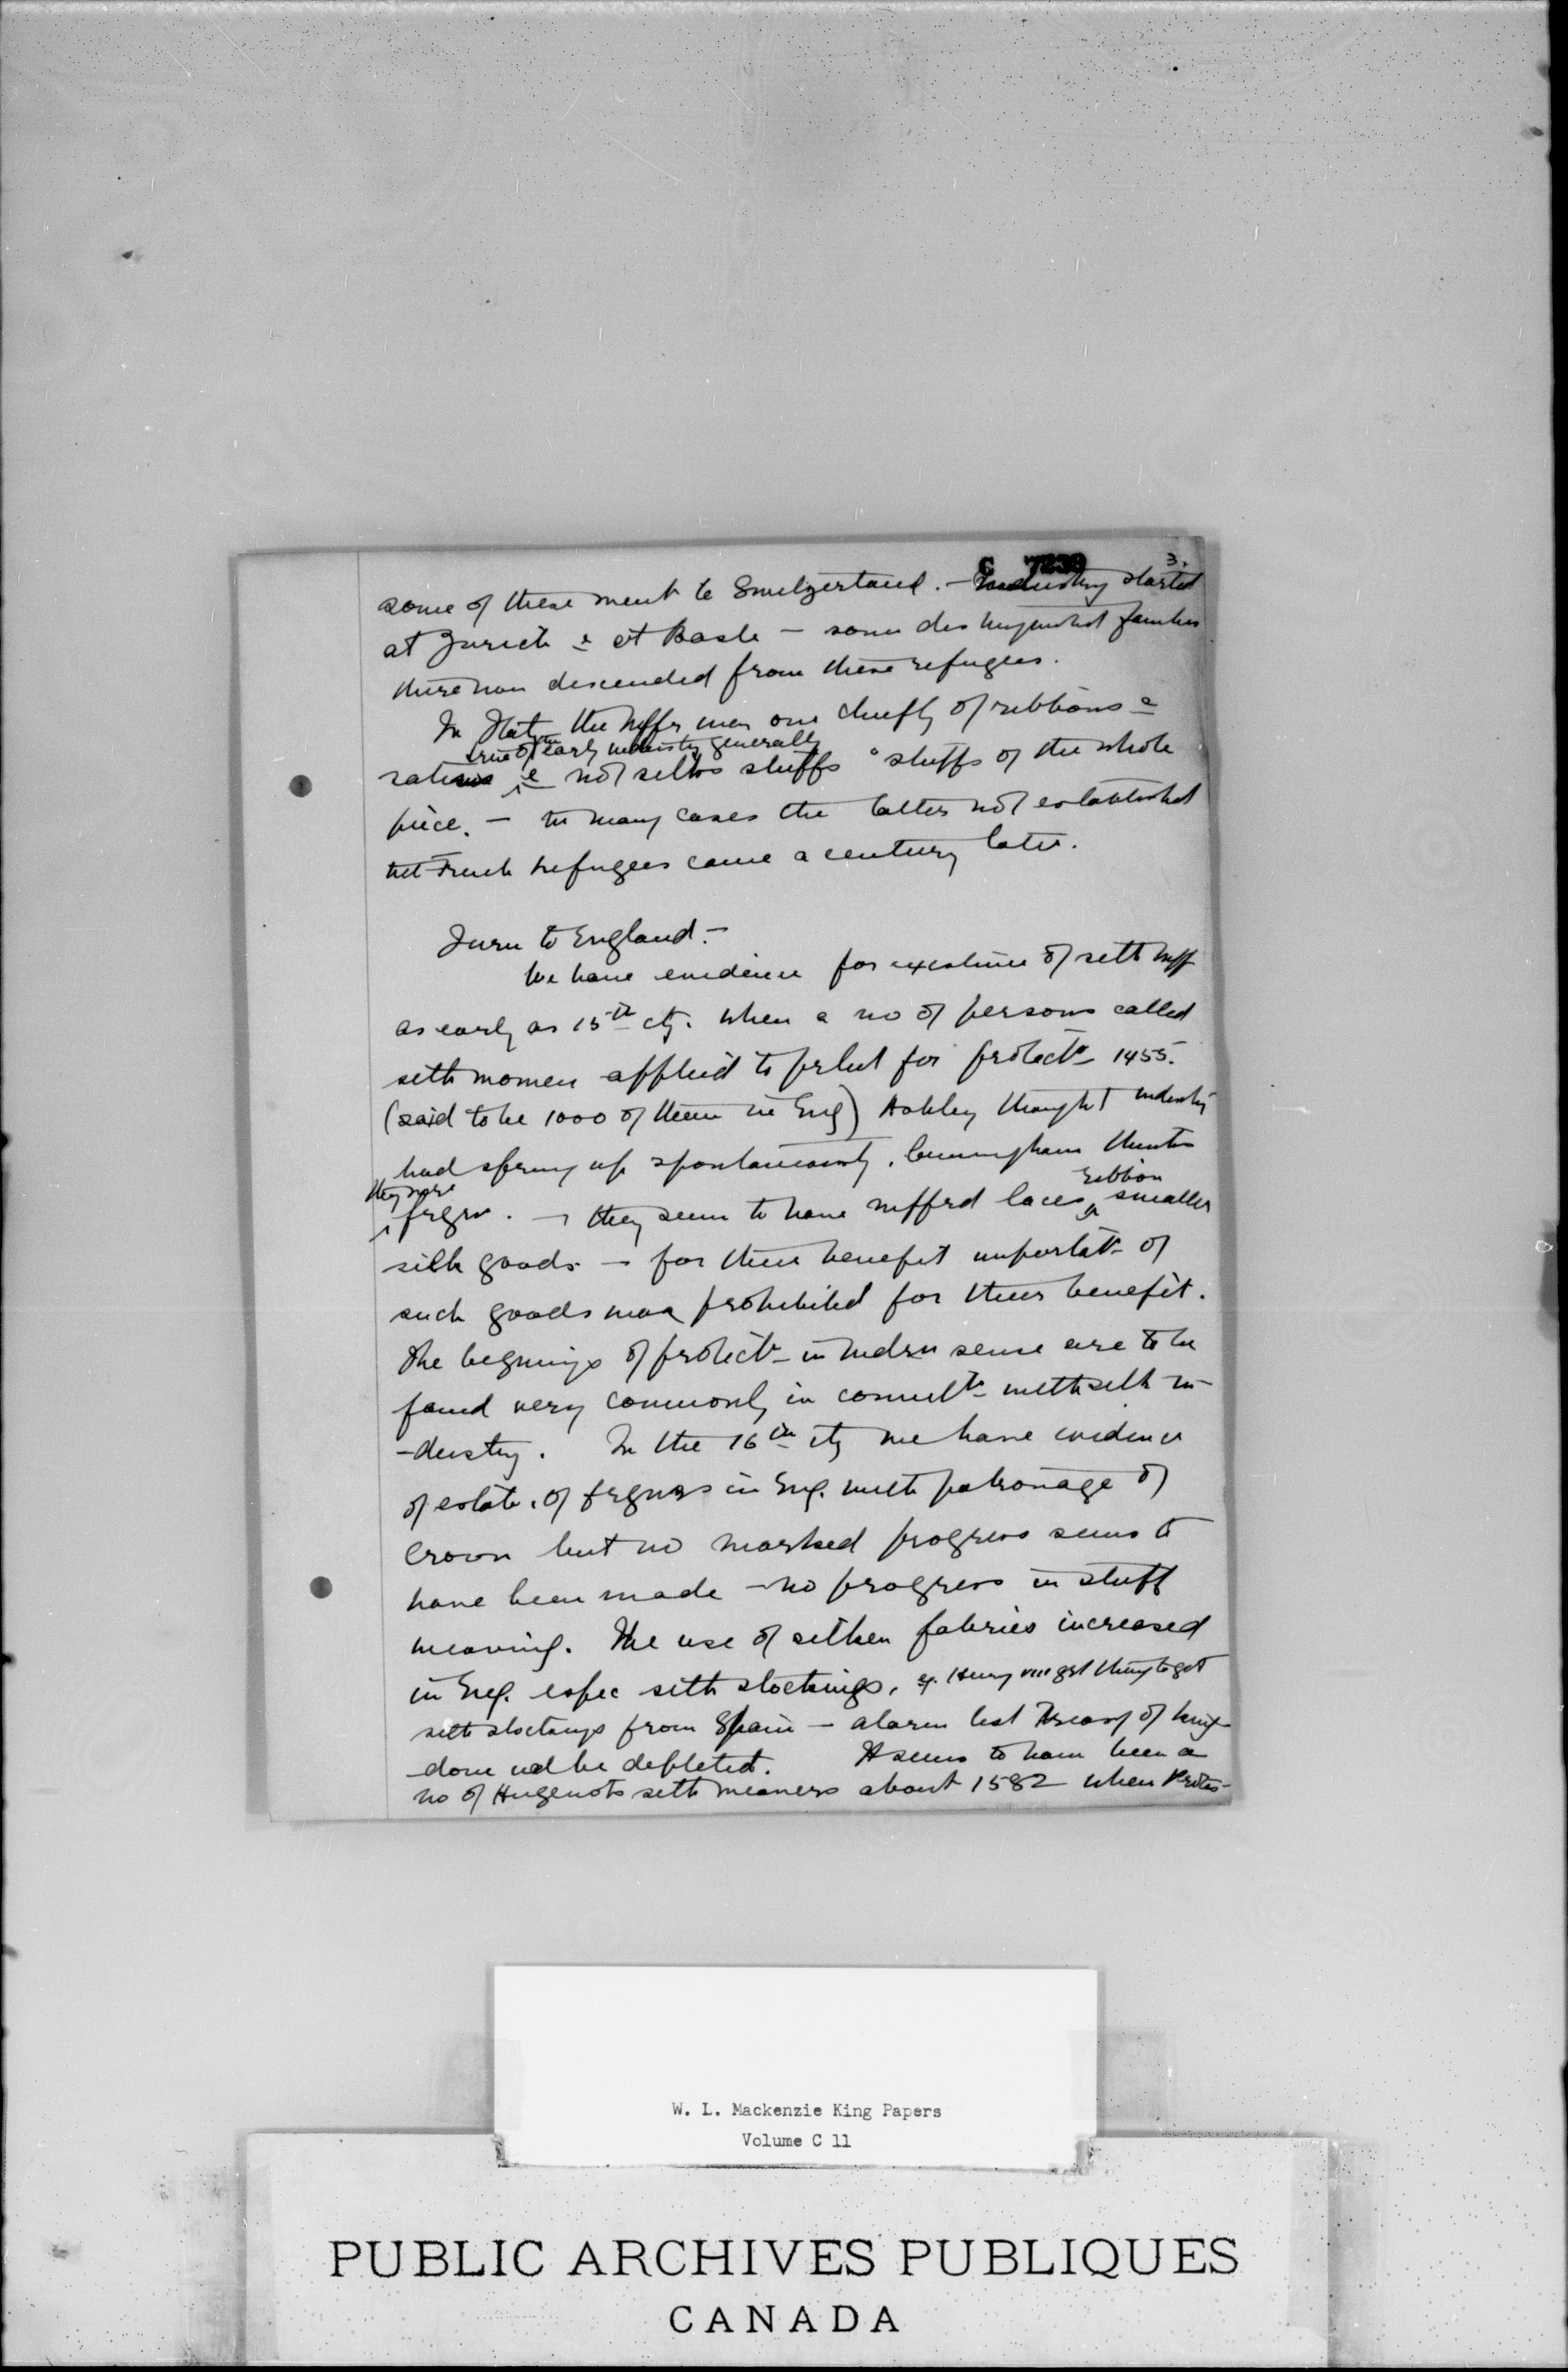 C 7239 3.
some of these went to Switzerland. – Industry started
at Zurich & at Basle – some distinguished families
there now descended from these refugees.
In Italy the mffr was one chiefly of ribbons &
true of early industry generally
satins & not silks stuffs "stuffs of the whole
piece. – in many cases the latter not established
till French refugees came a century later.
Turn to England. –
We have evidence for existence of silk mff
as early as 15th cty. when a no of persons called
silk women applied to prlmt for protectn 1455.
(said to be 1000 of them in Eng) Ashley thought industry
had sprung up spontaneously. Cunningham thinks
they were ribbon
frgrs. – they seem to have mffrd laces, smaller
silk goods – for their benefit importatn of
such goods was prohibited for their benefit.
The beginnings of protectn in modrn sense are to be
found very commonly in connectn with silk in-
-dustry. In the 16th cty we have evidence
of estab. of frgnrs in Eng. with patronage of
Crown but no marked progress seems to
have been made – no progress in stuff
weaving. The use of silken fabrics increased
in Eng. espec silk stockings, eg. Henry VIII get
silk stockings from Spain – alarm lest Treasy of king-
-dom wd be depleted. It seems to have been a
no of Hugenots silk weavers about 1582 when Protes-
W. L. Mackenzie King Papers
Volume C 11
PUBLIC ARCHIVES PUBLIQUES
CANADA